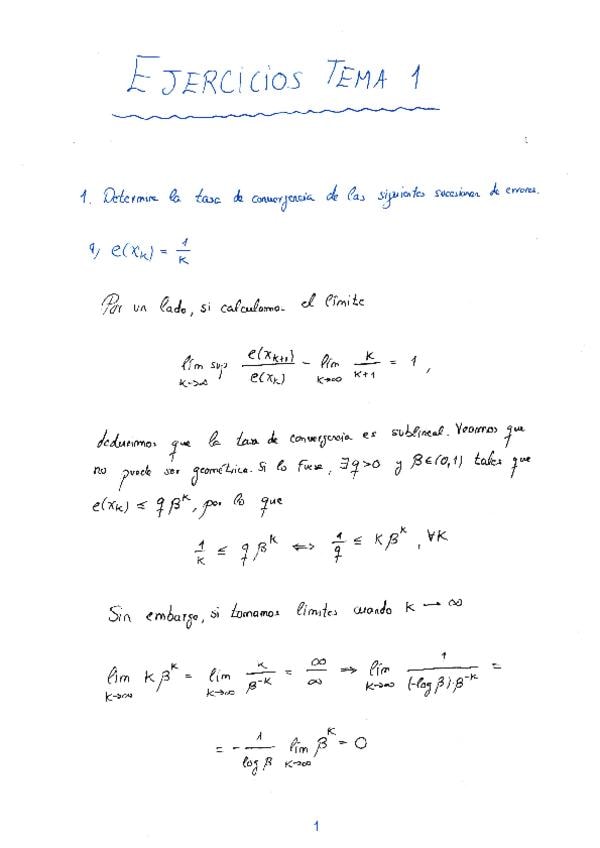 EJERCICIOS TEMA 1
1. Determine la tasa de convergencia de las siguientes sucesiones de errores.
a) e(x_k) = 1/k
Por un lado, si calculamos el límite
lím sup_{k→∞} e(x_{k+1})/e(x_k) = lím_{k→∞} k/(k+1) = 1,
deducimos que la tasa de convergencia es sublineal. Veamos que
no puede ser geométrica. Si lo fuese, ∃q>0 y β∈(0,1) tales que
e(x_k) ≤ qβ^k, por lo que
1/k ≤ qβ^k ⟺ 1/q ≤ kβ^k, ∀k
Sin embargo, si tomamos límites cuando k → ∞
lím_{k→∞} kβ^k = lím_{k→∞} k/β^{-k} = ∞/∞ ⟹ lím_{k→∞} 1/((-log β)·β^{-k}) =
= - 1/log β lím_{k→∞} β^k = 0
1